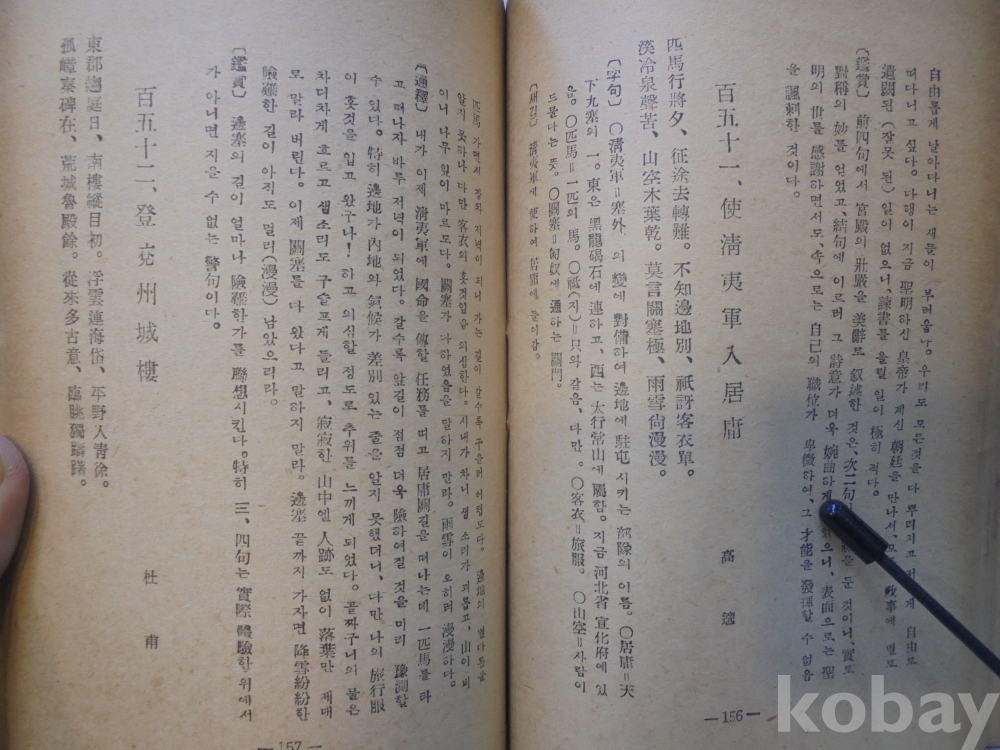 自由롭게 날아다니는 새들이 부러움다. 우리도 모든것을 다 뿌리치고 저 자유로
떠다니고 싶다. 다행이 지금 聖明하신 皇帝가 계신 朝廷을 만나서, 政事에 별로
遺闕된(잘못 된) 일이 없으니, 諫書를 올릴 일이 極히 적다.
〔鑑賞〕 前四句에서 宮殿의 壯嚴을 美辭로 叙述한 것은, 次二句 둔 것이니, 實로
對稱의 妙를 얻었고, 結句에 이르러 그 詩意가 더욱 婉曲하게 으니, 表面으로는 聖
明의 世를 感謝하면서도, 속으로는 自己의 職位가 卑微하여, 그 才能을 發揮할 수 없음
을 諷刺한 것이다.
百五十一、使淸夷軍入居庸
高適
匹馬行將夕、征途去轉難。不知邊地別、祇訝客衣單。
溪冷泉聲苦、山空木葉乾。莫言關塞極、雨雪尙漫漫。
〔字句〕 ○淸夷軍=塞外의 變에 對備하여 邊地에 駐屯시키는 部隊의 이름。○居庸=天
下九塞의 一。東은 黑龍碣石에 連하고、西는 太行常山에 屬함。지금 河北省 宣化府에 있
음。○匹馬=一匹의 馬。○祇(지)=只와 같음、다만。○客衣=旅服。○山空=사람이
드물다는 뜻。○關塞=匈奴에 通하는 關門。
〔새김〕 淸夷軍에 使하여 居庸에 들어감。
匹馬 가면서 장차 저녁이 되니 가는 길이 갈수록 구을러 어렵도다。邊地의 별다름을
알지 못하나 다만 客衣의 홋것임을 의심한다。시내가 차니 샘 소리가 괴롭고、山이 비
이니 나무 잎이 마르도다。關塞가 다하였음을 말하지 말라。雨雪이 오히려 漫漫하다。
〔通釋〕 내가 이제 淸夷軍에 國命을 傳할 任務를 띠고 居庸關길을 떠나는데 一匹馬를 타
고 떠나자 바루 저녁이 되었다。갈수록 앞길이 점점 더욱 險하여질 것을 미리 豫測할
수 있다。特히 邊地가 內地와 氣候가 差別 있는 줄을 알지 못했더니、다만 나의 旅行服
이 홋것을 입고 왔구나! 하고 의심할 정도로 추위를 느끼게 되었다。골짜구니의 물은
차디차게 흐르고 샘소리도 구슬프게 들리고、寂寂한 山中엔 人跡도 없이 落葉만 제대
로 말라 버린다。이제 關塞를 다 왔다고 말하지 말라。邊塞 끝까지 가자면 降雪紛紛한
險難한 길이 아직도 멀리(漫漫) 남았으리라。
〔鑑賞〕 邊塞의 길이 얼마나 險難한가를 聯想시킨다。特히 三、四句는 實際 體驗한 위에서
가 아니면 지을 수 없는 警句이다。
百五十二、登兗州城樓
杜甫
東郡趨庭日、南樓縱目初。浮雲連海岱、平野入靑徐。
孤嶂秦碑在、荒城魯殿餘。從來多古意、臨眺獨躊躇。
—156—
—157—
kobay